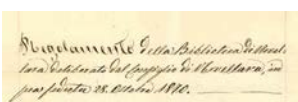 Regolamento della Biblioteca di Novel-
lara deliberato dal Consiglio di Novellara, in
sua seduta 28. Ottobre 1870.